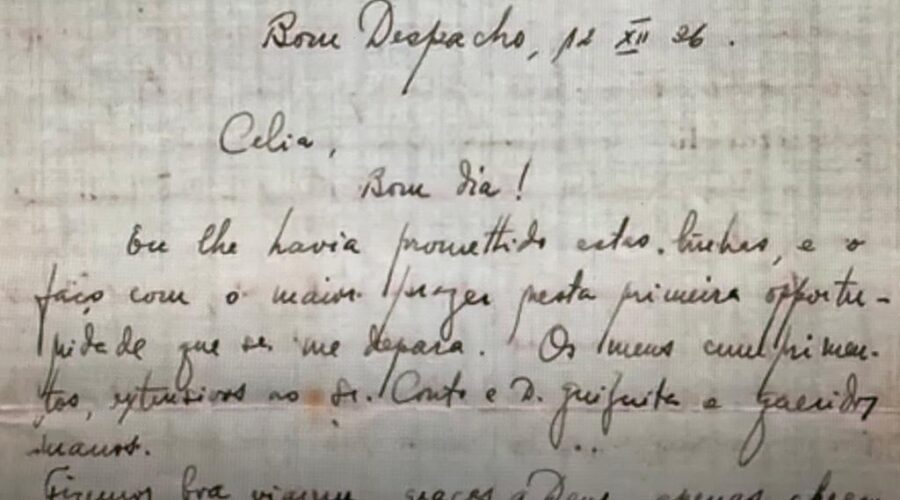 Bom Despacho, 12 XII 36.
Celia,
Bom dia!
Eu lhe havia promettido estas linhas, e o
faço com o maior prazer nesta primeira opportu-
nidade que se me depara. Os meus cumprimen-
tos, extensivos ao Sr. Couto e D. e queridos
manos.
Fizemos boa viagem, graças a Deus, apenas